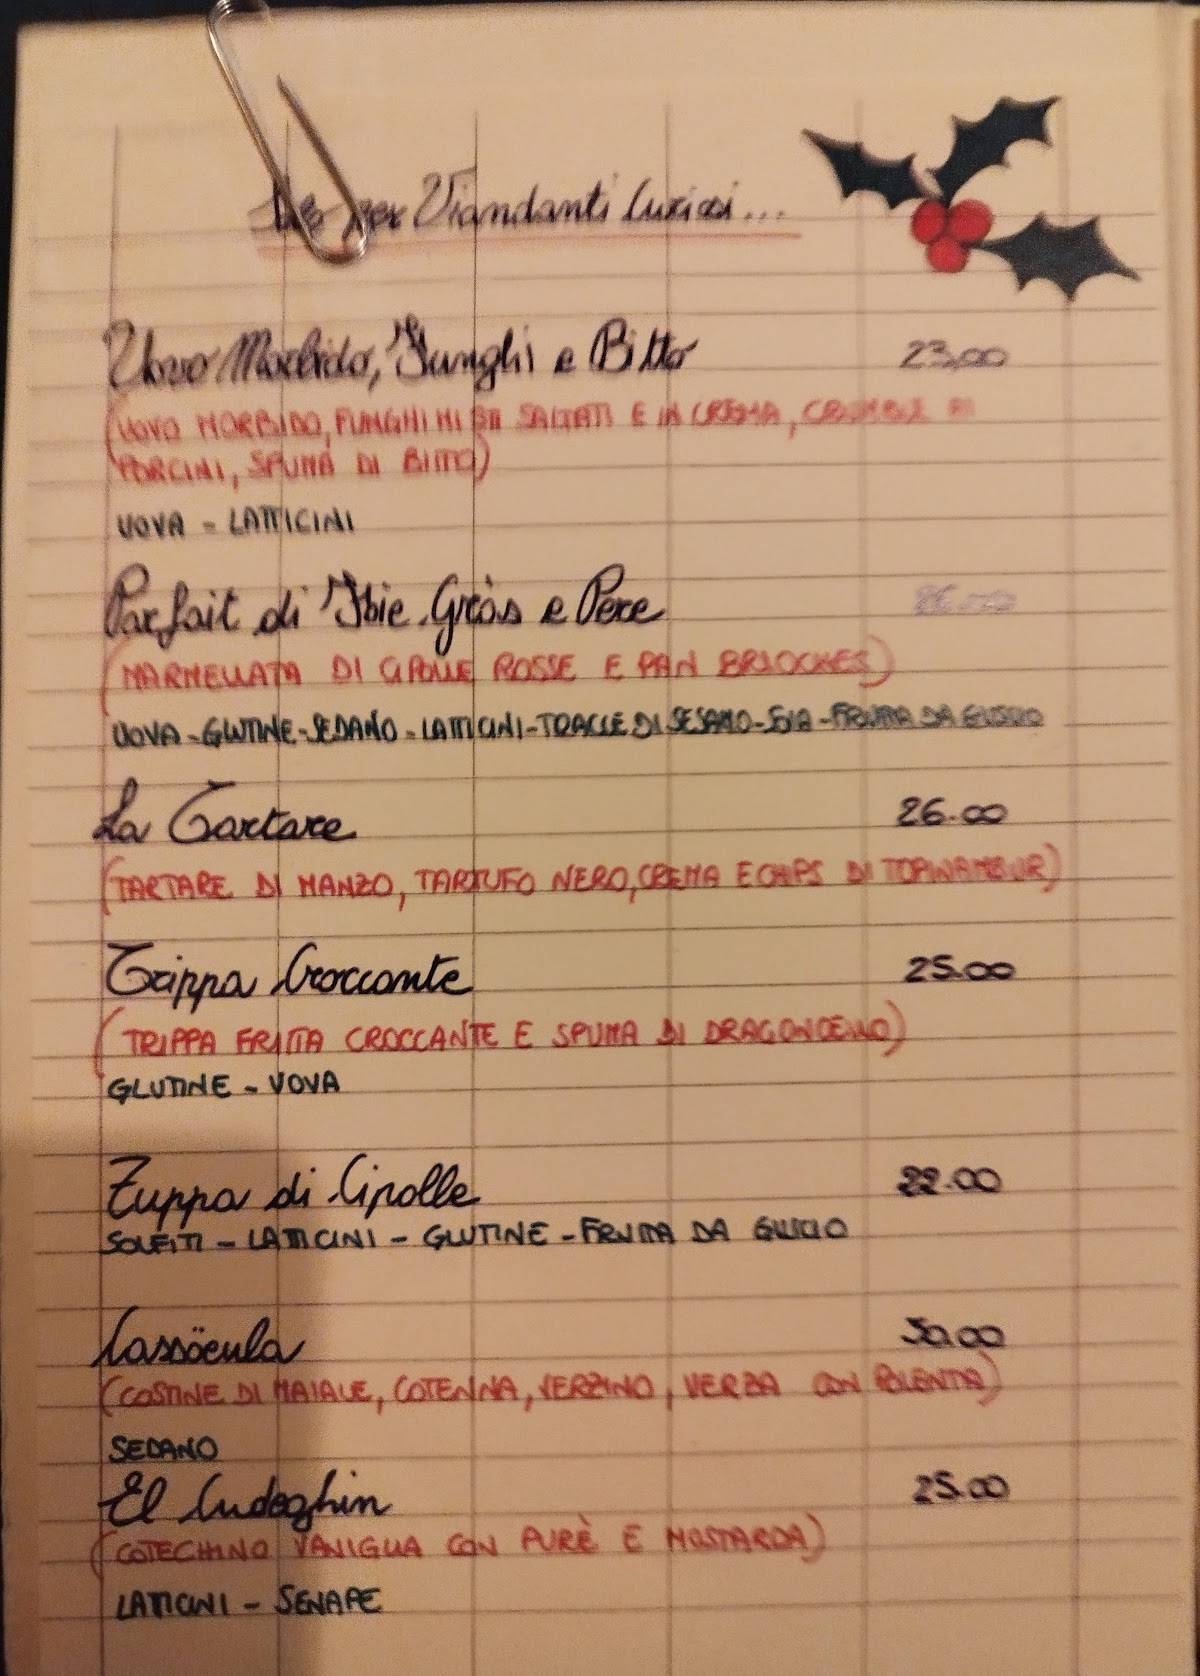 per Viandanti Curiosi...
Uovo Morbido, Funghi e Bitto 23,00
(UOVO MORBIDO, FUNGHI MISTI SALTATI E IN CREMA, CRUMBLE DI
PORCINI, SPUMA DI BITTO)
UOVA - LATTICINI
Parfait di Fois Gràs e Pere
(MARMELLATA DI CIPOLLE ROSSE E PAN BRIOCHES)
UOVA - GLUTINE - SEDANO - LATTICINI - TRACCE DI SESAMO - SOIA - FRUTTA DA GUSCIO
La Tartare 26.00
(TARTARE DI MANZO, TARTUFO NERO, CREMA E CHIPS DI TOPINAMBUR)
Trippa Croccante 25.00
(TRIPPA FRITTA CROCCANTE E SPUMA DI DRAGONCELLO)
GLUTINE - UOVA
Zuppa di Cipolle 22.00
SOLFITI - LATTICINI - GLUTINE - FRUTTA DA GUSCIO
Cassöeula 30.00
(COSTINE DI MAIALE, COTENNA, VERZINO, VERZA CON POLENTA)
SEDANO
El Cudeghin 25.00
(COTECHINO VANIGLIA CON PURÈ E MOSTARDA)
LATTICINI - SENAPE